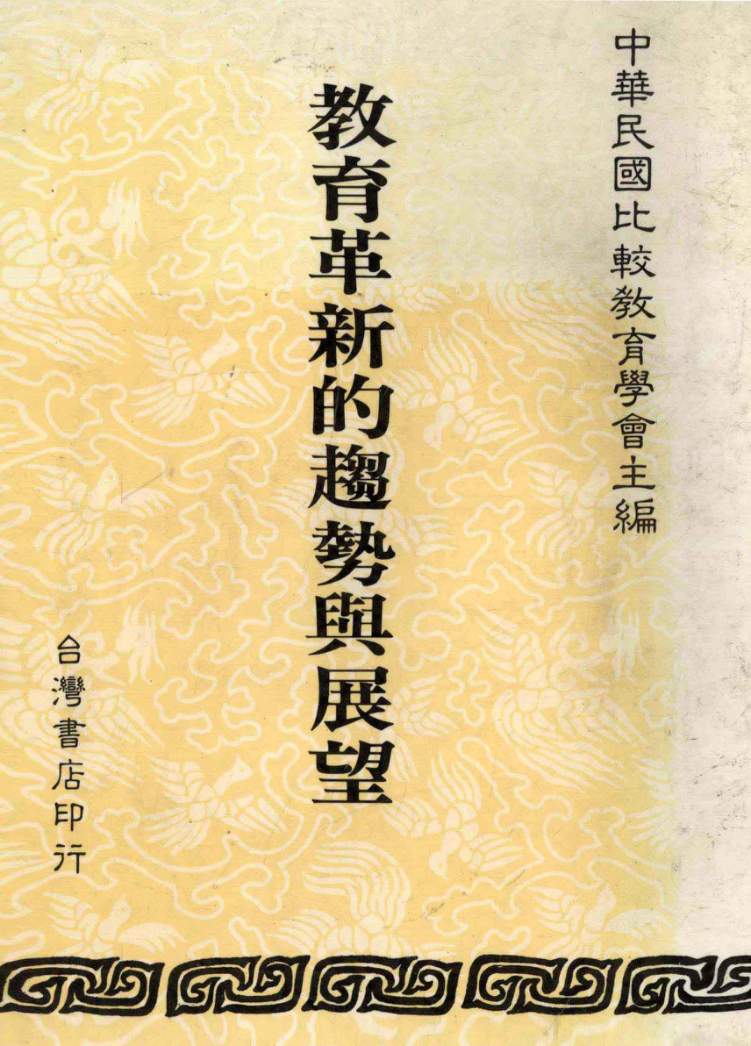 中華民國比較教育學會主編
教育革新的趨勢與展望
台灣書店印行